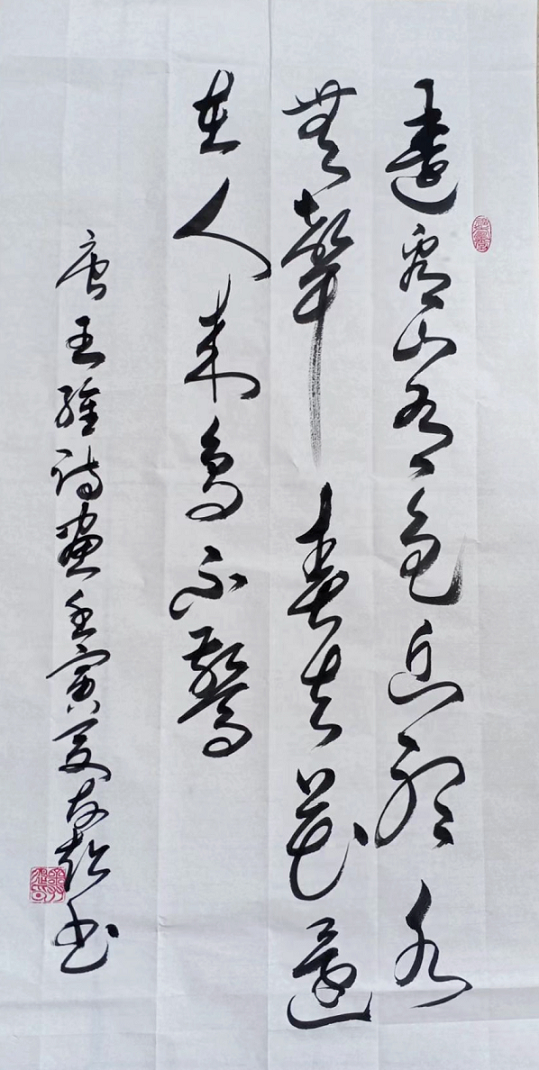 遠看山有色近聽水
無聲春去花還
在人來鳥不驚
唐王維詩畫壬寅夏友超书